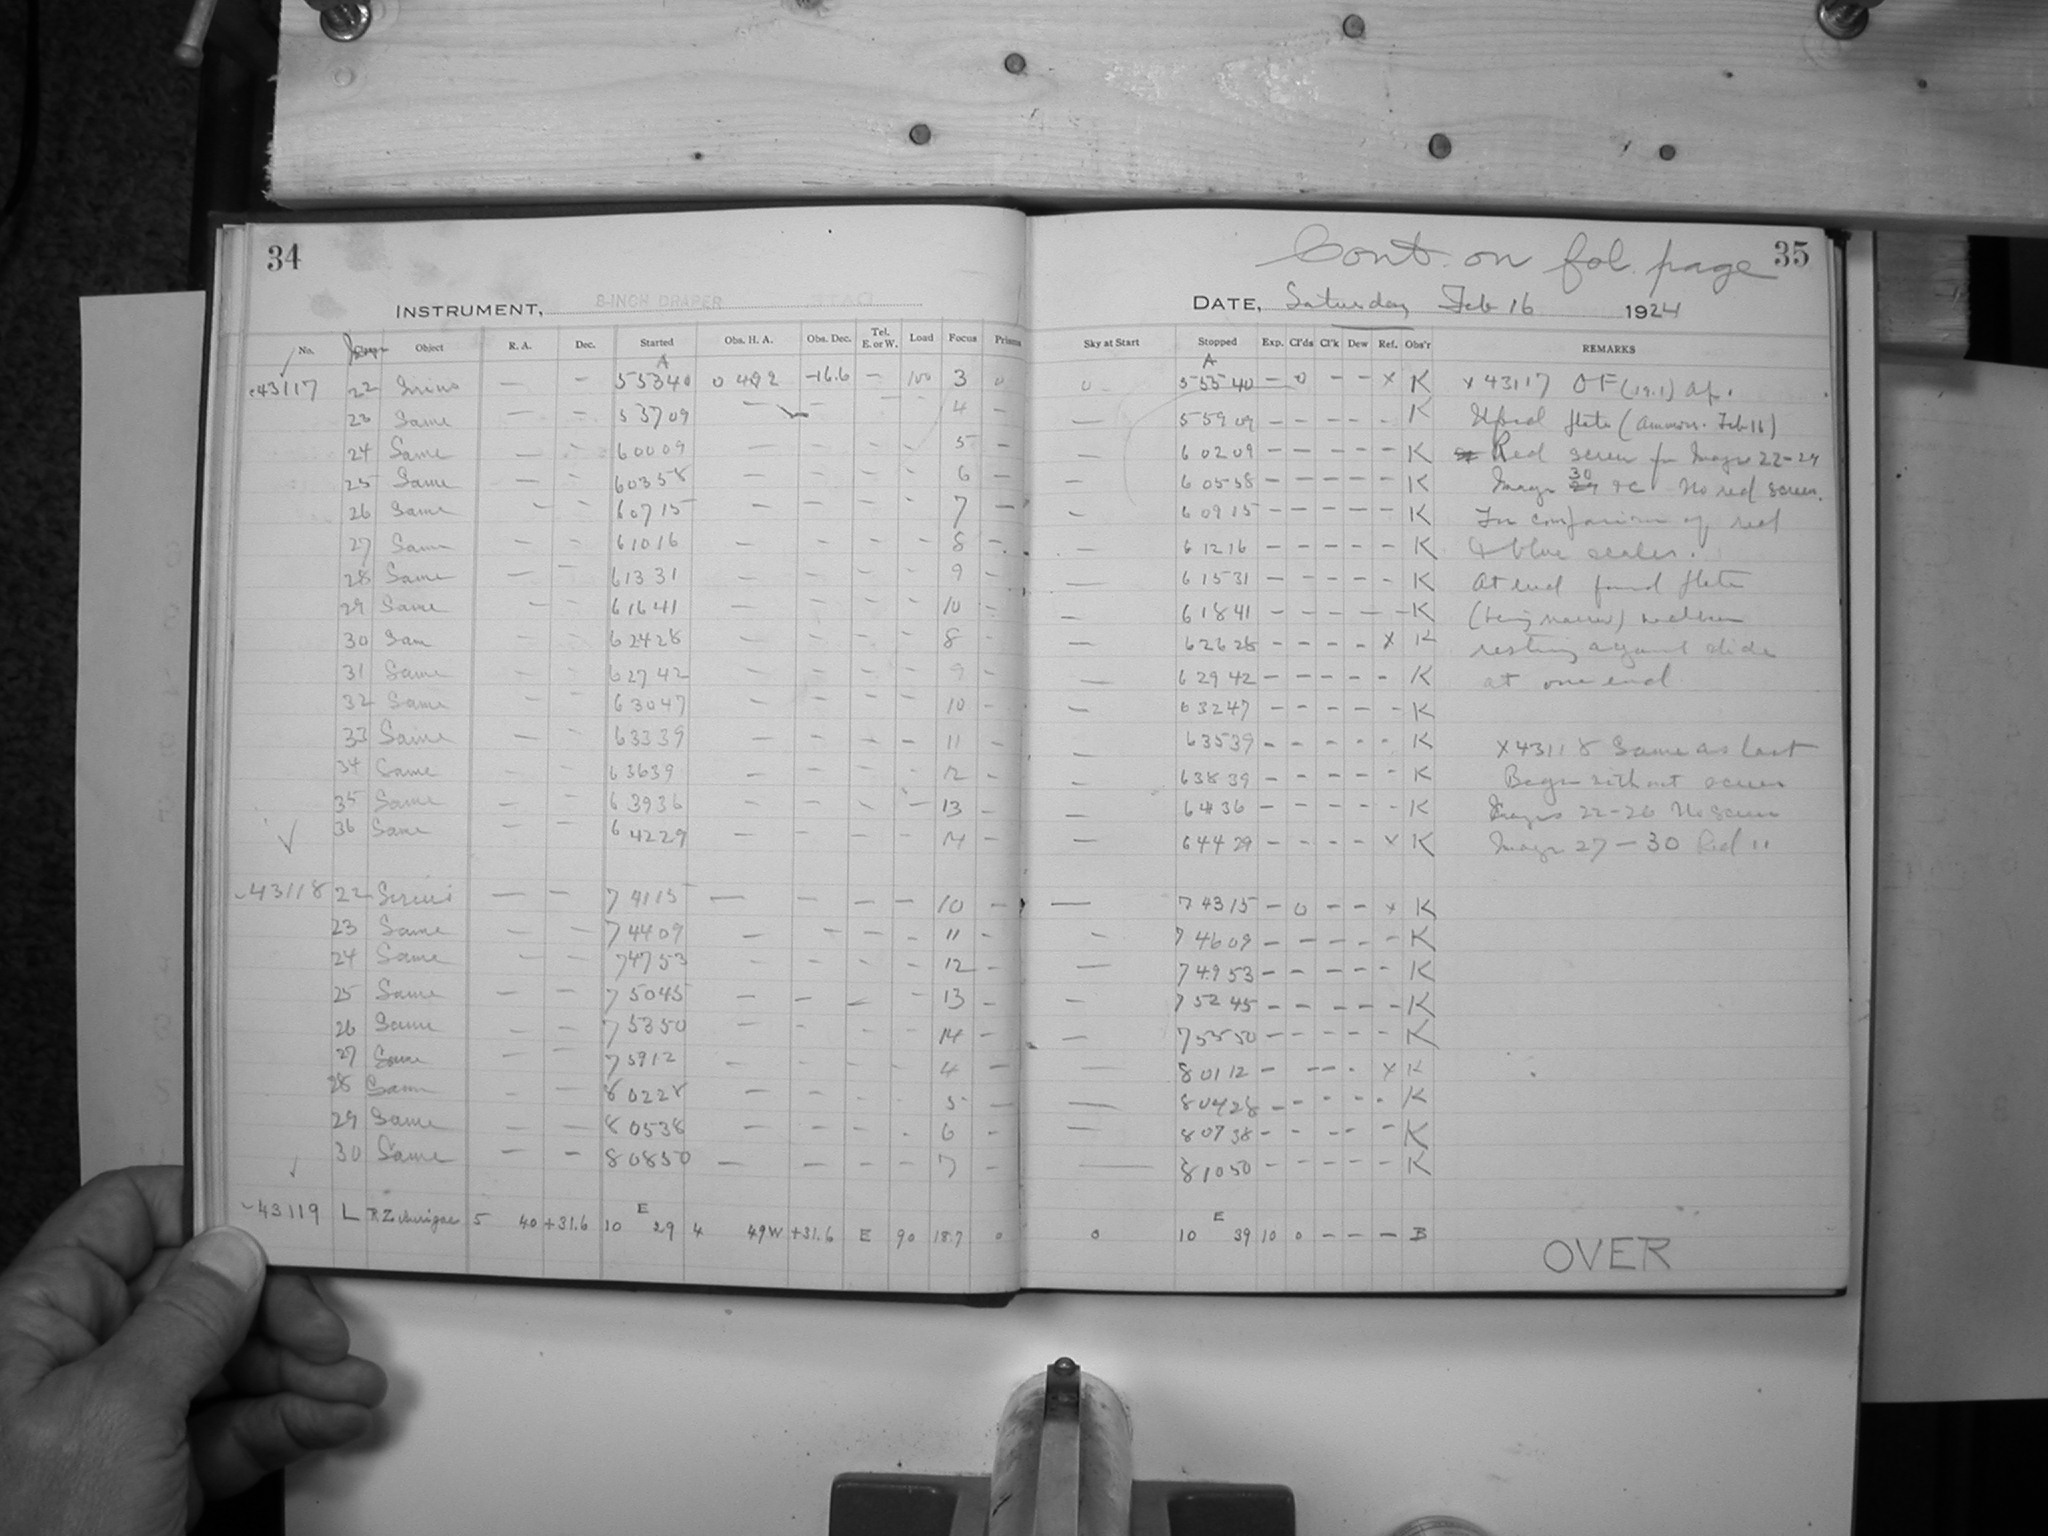 34
INSTRUMENT, 8-INCH DRAPER
No. Object R. A. Dec. Started Obs. H. A. Obs. Dec. Tel. E. or W. Load Focus Prisms
A
43117 22 Sirius — — 5 53 40 0 49 2 -16.6 — 100 3 0
23 Same — — 5 37 09 — — 4 —
24 Same — — 6 00 09 — — — — 5 —
25 Same — — 6 03 58 — — — — 6 —
26 Same — — 6 07 15 — — — — 7 —
27 Same — — 6 10 16 — — — — 8 —
28 Same — — 6 13 31 — — — — 9 —
29 Same — — 6 16 41 — — — — 10 —
30 Sam — — 6 24 28 — — — — 8 —
31 Same — — 6 27 42 — — — — 9 —
32 Same — — 6 30 47 — — — — 10 —
33 Same — — 6 33 39 — — — — 11 —
34 Same — — 6 36 39 — — — — 12 —
35 Same — — 6 39 36 — — — — 13 —
36 Same — — 6 42 29 — — — — 14 —
43118 22 Sirius — — 7 41 15 — — — — 10 —
23 Same — — 7 44 09 — — — — 11 —
24 Same — — 7 47 53 — — — — 12 —
25 Same — — 7 50 45 — — — — 13 —
26 Same — — 7 53 50 — — — — 14 —
27 Same — — 7 59 12 — — — — 4 —
28 Same — 8 02 28 — — — — 5 —
29 Same — — 8 05 38 — — — — 6 —
30 Same — — 8 08 50 — — — — 7 —
E
43119 L RZ Aurigae 5 40 +31.6 10 29 4 49W +31.6 E 90 18.7 0
Cont. on fol. page 35
DATE, Saturday Feb 16 1924
Sky at Start Stopped Exp. Cl'ds Cl'k Dew Ref. Obs'r REMARKS
A
0 5 55 40 — 0 — — x K x 43117 OF (19.1) ap.
— 5 59 09 — — — — — K plate (Feb 16)
— 6 02 09 — — — — — K Red screen for Images 22-29
— 6 05 58 — — — — — K Image 30 &c No red screen.
— 6 09 15 — — — — — K For comparison of red
— 6 12 16 — — — — — K & blue scales.
— 6 15 31 — — — — — K At end found plate
— 6 18 41 — — — — — K (being narrow)
— 6 26 28 — — — — x K resting against slide
— 6 29 42 — — — — — K at one end
— 6 32 47 — — — — — K
— 6 35 39 — — — — — K x 43118 Same as last
— 6 38 39 — — — — — K Began without screen
— 6 41 36 — — — — — K Images 22-26 No screen
— 6 44 29 — — — — x K Image 27-30 Red "
— 7 43 15 — 0 — — x K
— 7 46 09 — — — — — K
— 7 49 53 — — — — — K
— 7 52 45 — — — — — K
— 7 55 50 — — — — — K
— 8 01 12 — — — — x K
— 8 04 28 — — — — — K
— 8 07 38 — — — — — K
— 8 10 50 — — — — — K
E
0 10 39 10 0 — — — B
OVER